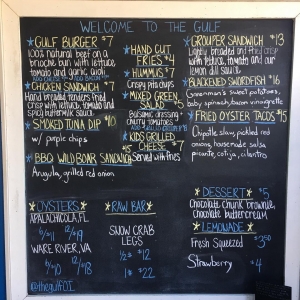 WELCOME TO THE GULF
GULF BURGER $7
100% natural beef on a
brioche bun with lettuce,
tomato and garlic aioli
CHICKEN SANDWICH $7
Hand breaded tenders fried
crisp with lettuce, tomato and
spicy buttermilk sauce
SMOKED TUNA DIP $10
w/ purple chips
BBQ WILD BOAR SANDWICH
Arugula, grilled red onion
HAND CUT
FRIES $4
HUMMUS $7
Crispy pita chips
MIXED GREEN
SALAD $5
Balsamic dressing
cherry tomatoes
KIDS GRILLED
CHEESE $7
Served with fries
GROUPER SANDWICH $13
Lightly breaded and fried crisp
with lettuce, tomato and our
lemon dill sauce
BLACKENED SWORDFISH $16
sweet potatoes,
baby spinach, bacon vinaigrette
FRIED OYSTER TACOS $15
Chipotle slaw, pickled red
onions, housemade salsa
picante, cotija, cilantro
OYSTERS
APALACHICOLA, FL
6/$11 12/$19
WARE RIVER, VA
6/$10 12/$18
RAW BAR
SNOW CRAB
LEGS
½ $12
1# $22
DESSERT $5
Chocolate Chunk brownie,
chocolate buttercream
LEMONADE
Fresh Squeezed $3.50
Strawberry $4
@thegulfOI